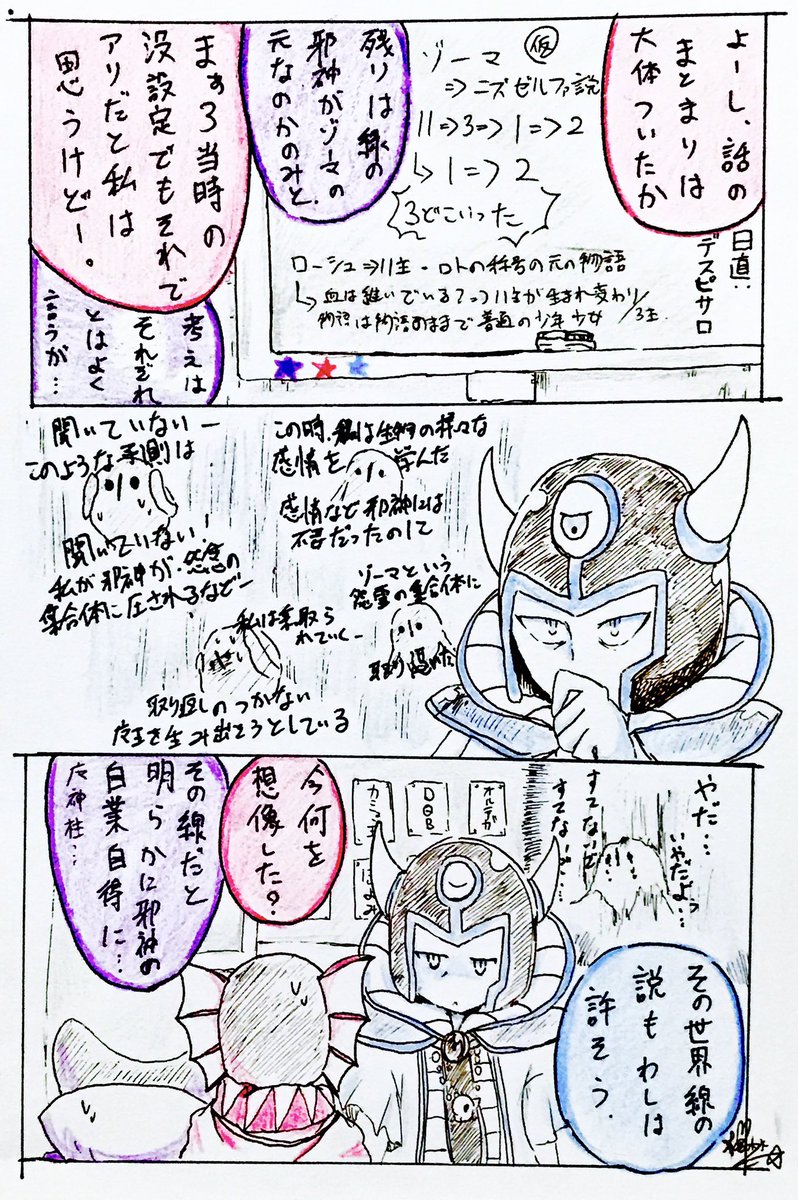 よーし、話の
まとまりは
大体ついたか
日直:
デスピサロ
ゾーマ
(仮)
=>ニズゼルファ説
11=>3=>1=>2
↳1=>2
3どこいった
ローシュ=>11主・ロトの称号の元の物語
物語は物語のままで普通の少年少女/3主
残りは緑の
邪神がゾーマの
元なのかのみと。
まぁ3当時の
没設定でもそれで
アリだと私は
思うけどー。
考えは
それぞれ
とはよく
言うが…
この時、私は生物の様々な
感情を学んだ
感情など邪神には
不要だったのに
ゾーマという
怨霊の集合体に
聞いていないー
このような予測は
聞いていない!
私が邪神が、怨念の
集合体に圧されるなどー
取り返しのつかない
を生み出そうとしている
やだ…
いやだよぅ
すてないで
すてないで…
その世界線の
説もわしは
許そう。
今何を
想像した?
その線だと
明らかに邪神の
自業自得に…
オルデガ
DQB